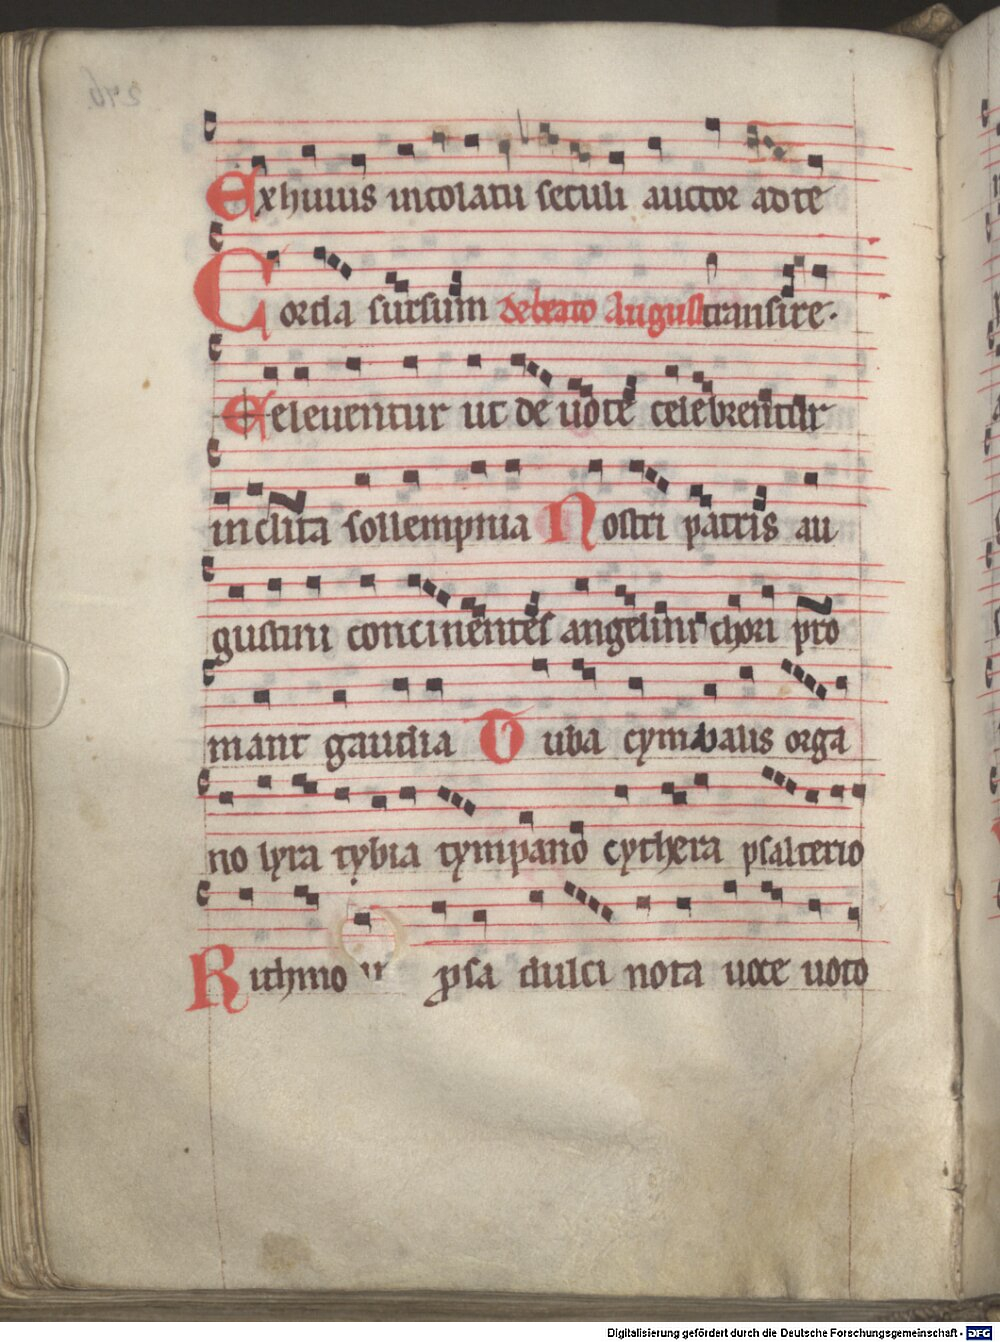 Ex huius incolatu seculi auctor ad te
Corda sursum de beato August transire.
Eeleuentur ut de uote celebrentur
inclita sollempnia Nostri patris au
gustini concinentes angelini chori pro
mant gaudia Tuba cymbalis orga
no lyra tybia tympano cythera psalterio
Rithmo ipsa dulci nota uoce uoto
Digitalisierung gefördert durch die Deutsche Forschungsgemeinschaft - DFG